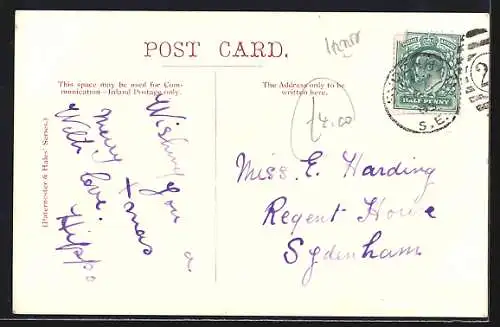 POST CARD.
This space may be used for Com-
munication—Inland Postage only.
The Address only to be
written here.
(Paternoster & Hales' Series.)
Wishing you a
merry Xmas
With love.
Hippo
£4.00
Miss. E. Harding
Regent House
Sydenham
HALF PENNY
S.E.
2